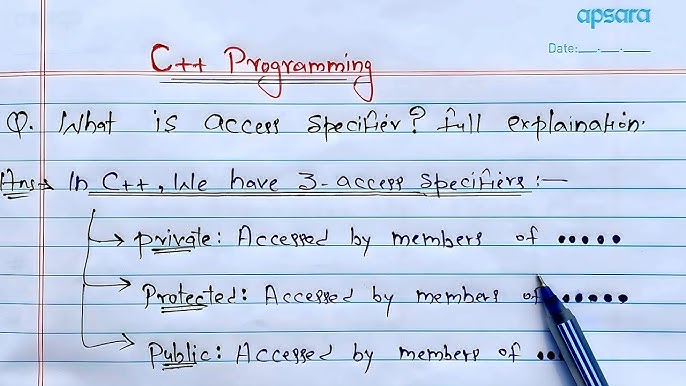 apsara
Date:__.__.__
C++ Programming
Q. What is access specifier? full explaination.
Ans→ In C++, We have 3-access specifiers:-
→ private: Accessed by members of .....
→ Protected: Accessed by members of .....
→ Public: Accessed by members of ...